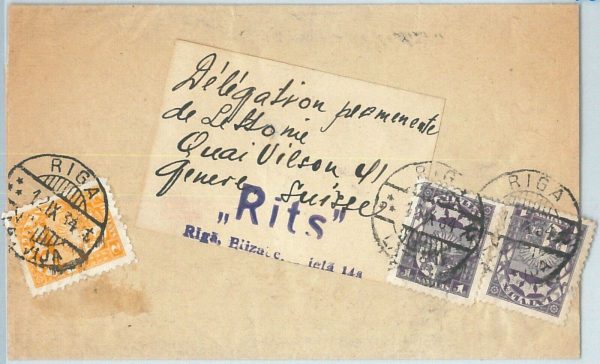 Délégation permenente
de Lettonie
Quai Vilson 41
Geneve Suisse
„Rits"
Rīgā, Elizabetes ielā 14a
RIGA
1 IX 34
LATVIJA
RIGA
IX 34
RIGA